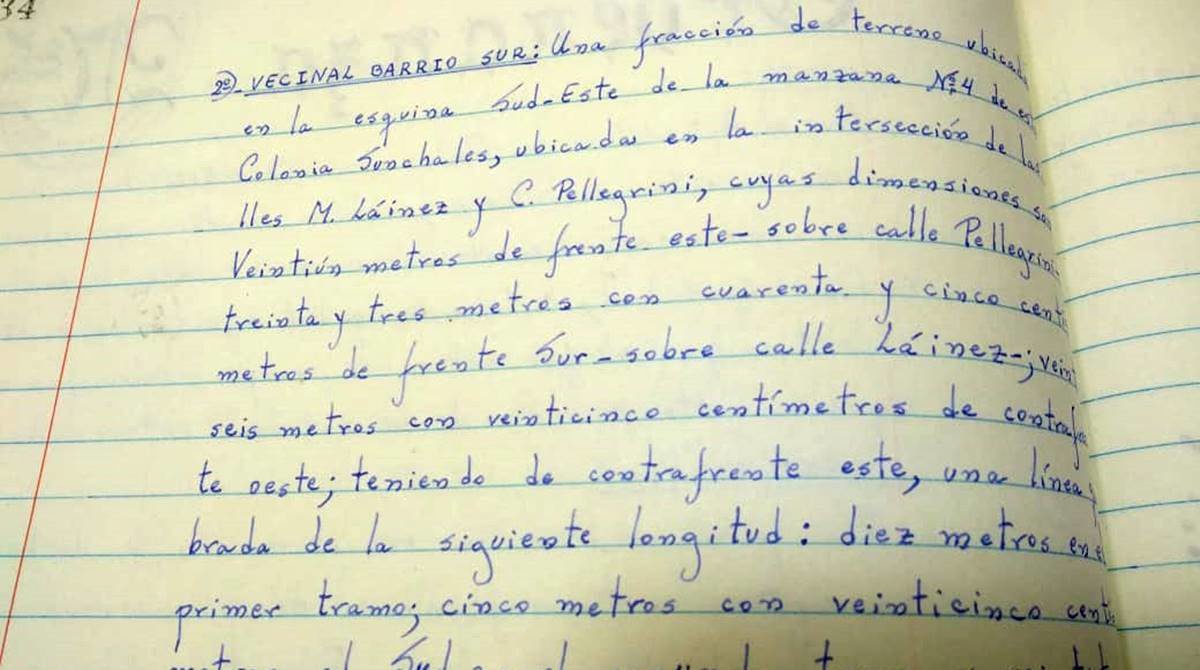 34
2º)- VECINAL BARRIO SUR: Una fracción de terreno ubicad
en la esquina Sud-Este de la manzana Nº 4 de es
Colonia Sunchales, ubicada en la intersección de las
lles M. Láinez y C. Pellegrini, cuyas dimensiones son
Veintiún metros de frente este- sobre calle Pellegrini-
treinta y tres metros con cuarenta y cinco centí
metros de frente Sur- sobre calle Láinez-; vein
seis metros con veinticinco centímetros de contrafren
te oeste; teniendo de contrafrente este, una línea q
brada de la siguiente longitud: diez metros en e
primer tramo; cinco metros con veinticinco centí
metros al Sud